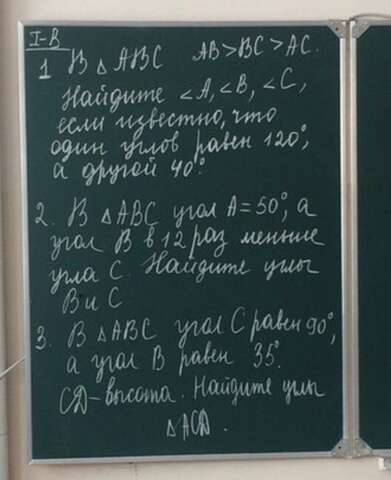 I-В
1 В △ АВС АВ>ВС>АС.
Найдите <А, <В, <С,
если известно, что
один углов равен 120°,
а другой 40°.
2. В △АВС угол А=50°, а
угол В в 12 раз меньше
угла С. Найдите углы
В и С
3. В △АВС угол С равен 90°,
а угол В равен 35°.
СД-высота. Найдите углы
△АСД.